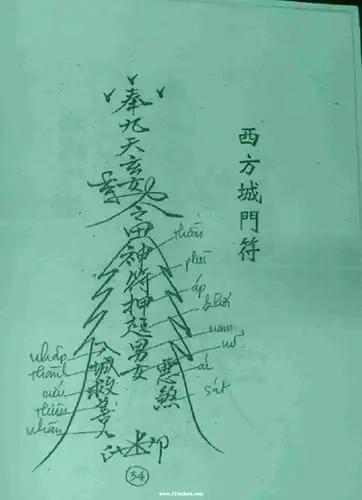 西方城門符
奉九天玄女
令
神符押起男女
惡煞
入城救善人
thần
phù
áp
khởi
nam
nữ
ác
sát
nhập
thành
cứu
thiện
nhân
34
www.fitbulous.com